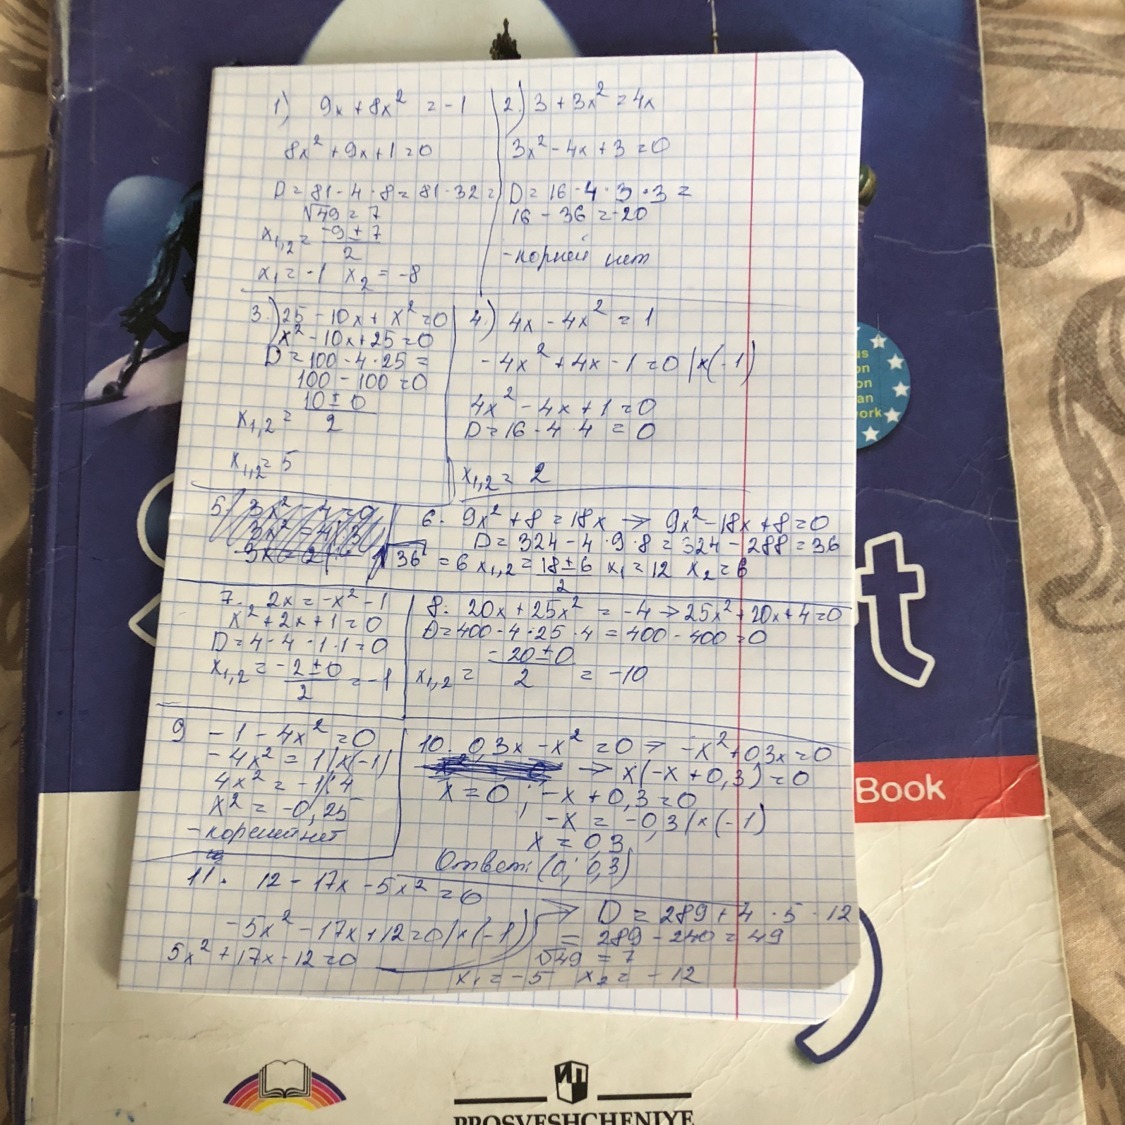 1) 9x + 8x² = -1
8x² + 9x + 1 = 0
D = 81 - 4 · 8 = 81 - 32 =
√49 = 7
x₁,₂ = (-9 ± 7)/2
x₁ = -1 x₂ = -8
2) 3 + 3x² = 4x
3x² - 4x + 3 = 0
D = 16 - 4 · 3 · 3 =
16 - 36 = -20
- корней нет
3.) 25 - 10x + x² = 0
x² - 10x + 25 = 0
D = 100 - 4 · 25 =
100 - 100 = 0
x₁,₂ = (10 ± 0)/2
x₁,₂ = 5
4.) 4x - 4x² = 1
-4x² + 4x - 1 = 0 | x(-1)
4x² - 4x + 1 = 0
D = 16 - 4 · 4 = 0
x₁,₂ = 2
6. 9x² + 8 = 18x → 9x² - 18x + 8 = 0
D = 324 - 4 · 9 · 8 = 324 - 288 = 36
√36 = 6 x₁,₂ = (18 ± 6)/2 x₁ = 12 x₂ = 6
7. 2x = -x² - 1
x² + 2x + 1 = 0
D = 4 - 4 · 1 · 1 = 0
x₁,₂ = (-2 ± 0)/2 = -1
8. 20x + 25x² = -4 → 25x² + 20x + 4 = 0
D = 400 - 4 · 25 · 4 = 400 - 400 = 0
x₁,₂ = (-20 ± 0)/2 = -10
9 -1 - 4x² = 0
-4x² = 1 | x(-1)
4x² = -1 | : 4
x² = -0,25
- корней нет
10. 0,3x - x² = 0 → -x² + 0,3x = 0
→ x(-x + 0,3) = 0
x = 0 ; -x + 0,3 = 0
-x = -0,3 | x(-1)
x = 0,3
Ответ: (0; 0,3)
11. 12 - 17x - 5x² = 0
-5x² - 17x + 12 = 0 | x(-1)
5x² + 17x - 12 = 0
D = 289 + 4 · 5 · 12
= 289 - 240 = 49
√49 = 7
x₁ = -5 x₂ = -12
Book
PROSVESHCHENIYE